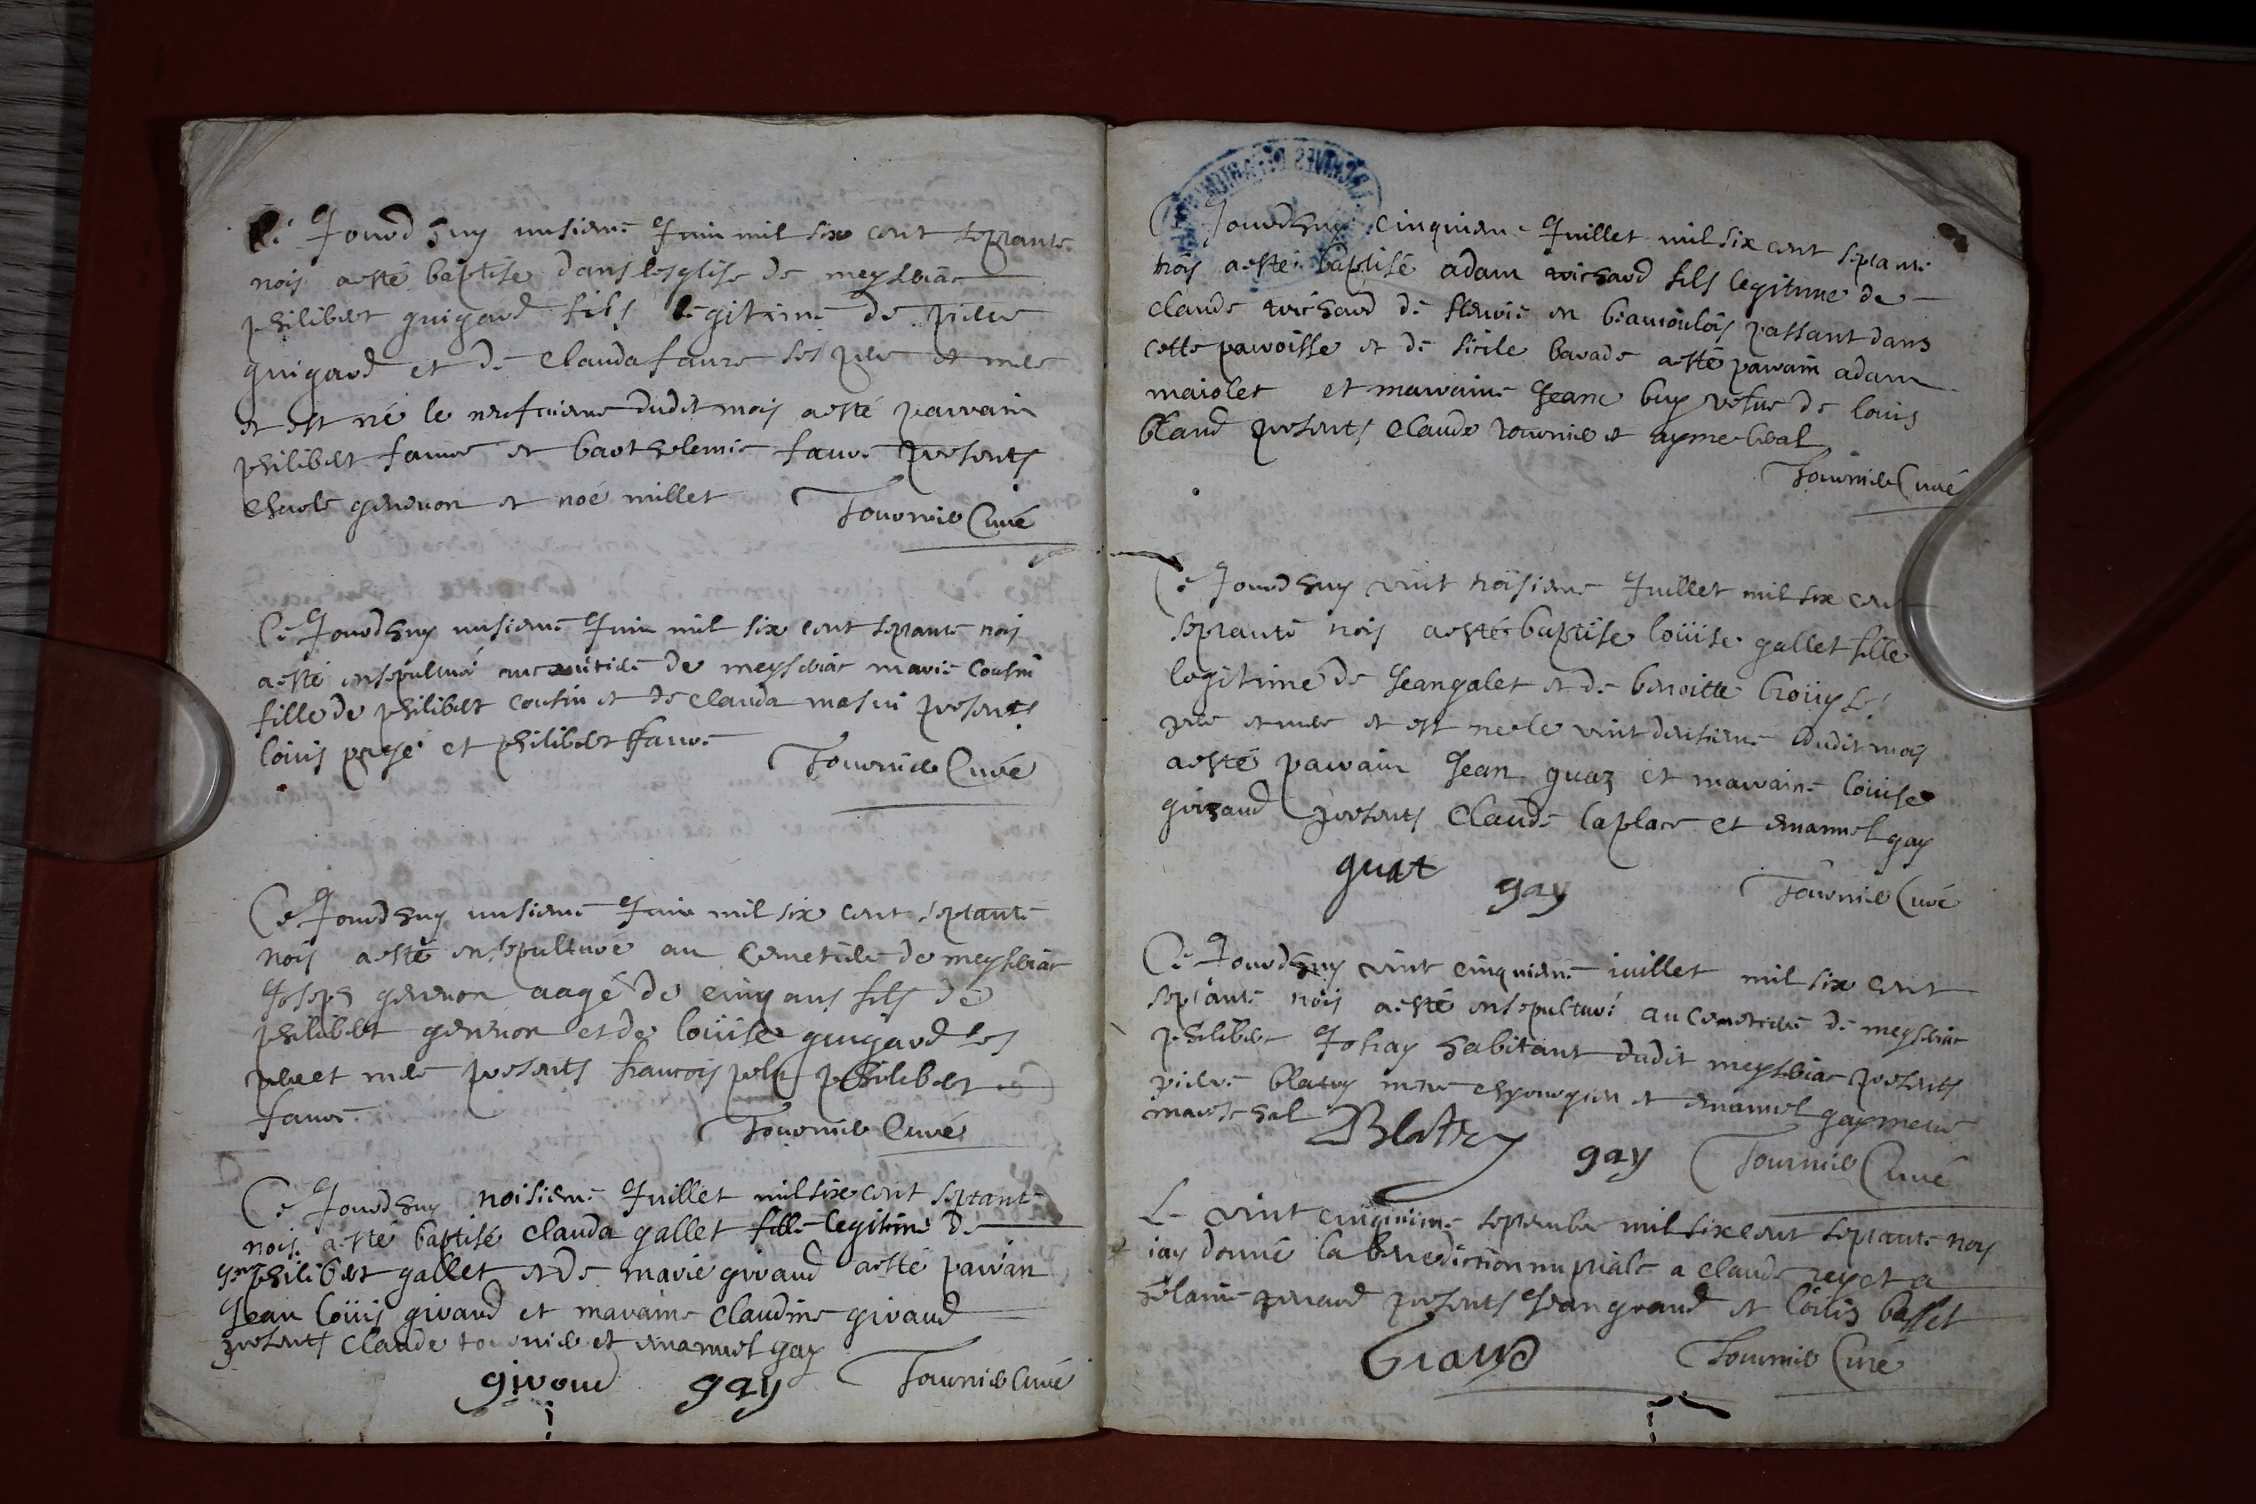 Ce Jourdhuy unsieme Juin mil six cent septante
trois a esté baptisé dans lesglise de meyseriac
philibert guigard fils legitime de pierre
guigard et de Clauda faure ses pere et mere
et est né le neufuieme dudit mois a esté parrain
philibert faure et barthelemie faure presents
Charle genevon et noé millet Tournier Curé
Ce Jourdhuy unsieme Juin mil six cent septante trois
a esté ensepulturé au cemetiere de meyseriac marie Cousin
fille de philibert cousin et de clauda presents
louis et philibert ffaure
Tournier Curé
Ce Jourdhuy unsieme Juin mil six cent septante
trois a esté ensepulturé au cemetiere de meyseriac
Joseph genevon aagé de cinq ans fils de
philibert genevon et de louise guigard ses
pere et mere presents francois philibert
faure
Tournier Curé
Ce Jourdhuy troisieme Juillet mil six cent septante
trois a esté baptisé clauda gallet fille legitime de
philibert gallet et de marie giraud a esté parrain
Jean louis giraud et maraine claudine giraud
presents claude tournier et emanuel gay
giroud gay Tournier Curé
Ce Jourdhuy cinquieme Juillet mil six cent septante
trois a esté baptisé adam richard fils legitime de
claude richard de fleurie en beauiolois passant dans
cette parroisse et de sicile barade a esté parrain adam
maiolet et marraine Jeane buy vefue de louis
bland presents Claude tournier et ayme
Tournier Curé
Ce Jourdhuy vint troisieme Juillet mil six cent
septante trois a esté baptise loüise gallet fille
legitime de Jean galet et de benoitte ses
pere et mere et est nee le vint deusieme dudit mois
a esté parrain Jean guaz et marraine loüise
giraud presents Claude laplace et emanuel gay
guat gay Tournier Curé
Ce Jourdhuy vint cinquieme iuillet mil six cent
septante trois a esté ensepulturé au cemetiere de meyseriac
philibert habitant dudit meyseriac presents
pierre blatry mtre chyrurgien et emanuel gay mtre
mareschal Blatry gay Tournier Curé
Le vint cinquieme septembre mil six cent septante trois
iay donné la benediction nuptiale a claude rey et a
helaine presents Jean graud et louis basset
Graud Tournier Curé